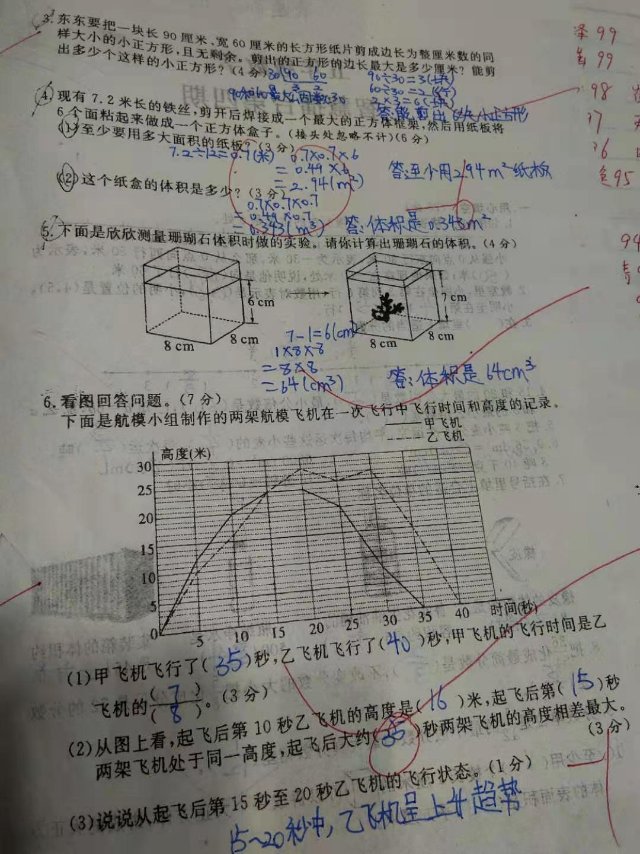 3. 东东要把一块长 90 厘米、宽 60 厘米的长方形纸片剪成边长为整厘米数的同
样大小的小正方形，且无剩余。剪出的正方形的边长最大是多少厘米？能剪
出多少个这样的小正方形？(4 分)
90÷30=3(块)
60÷30=2
2×3=6(块)
4. 现有 7.2 米长的铁丝，剪开后焊接成一个最大的正方体框架，然后用纸板将
6 个面粘起来做成一个正方体盒子。(接头处忽略不计)(6 分)
(1)至少要用多大面积的纸板？(3 分)
7.2÷12=0.7(米)
0.7×0.7×6
=0.49×6
=2.94(m²)
答:至少用2.94m²纸板
(2)这个纸盒的体积是多少？(3 分)
0.7×0.7×0.7
=0.49×0.7
=0.343(m³)
答:体积是0.343m²
5. 下面是欣欣测量珊瑚石体积时做的实验。请你计算出珊瑚石的体积。(4 分)
6 cm
8 cm
8 cm
7 cm
8 cm
8 cm
7-1=6(cm)
1×8×8
=8×8
=64(cm³)
答:体积是64cm³
6. 看图回答问题。(7 分)
下面是航模小组制作的两架航模飞机在一次飞行中飞行时间和高度的记录。
甲飞机
乙飞机
高度(米)
30
25
20
15
10
5
0
5
10
15
20
25
30
35
40
时间(秒)
(1)甲飞机飞行了(35)秒，乙飞机飞行了(40)秒，甲飞机的飞行时间是乙
飞机的(7)/(8)。(3 分)
(2)从图上看，起飞后第 10 秒乙飞机的高度是(16)米，起飞后第(15)秒
两架飞机处于同一高度，起飞后大约(35)秒两架飞机的高度相差最大。
(3 分)
(3)说说从起飞后第 15 秒至 20 秒乙飞机的飞行状态。(1 分)
15~20秒中,乙飞机呈上升趋势
99
99
98
95